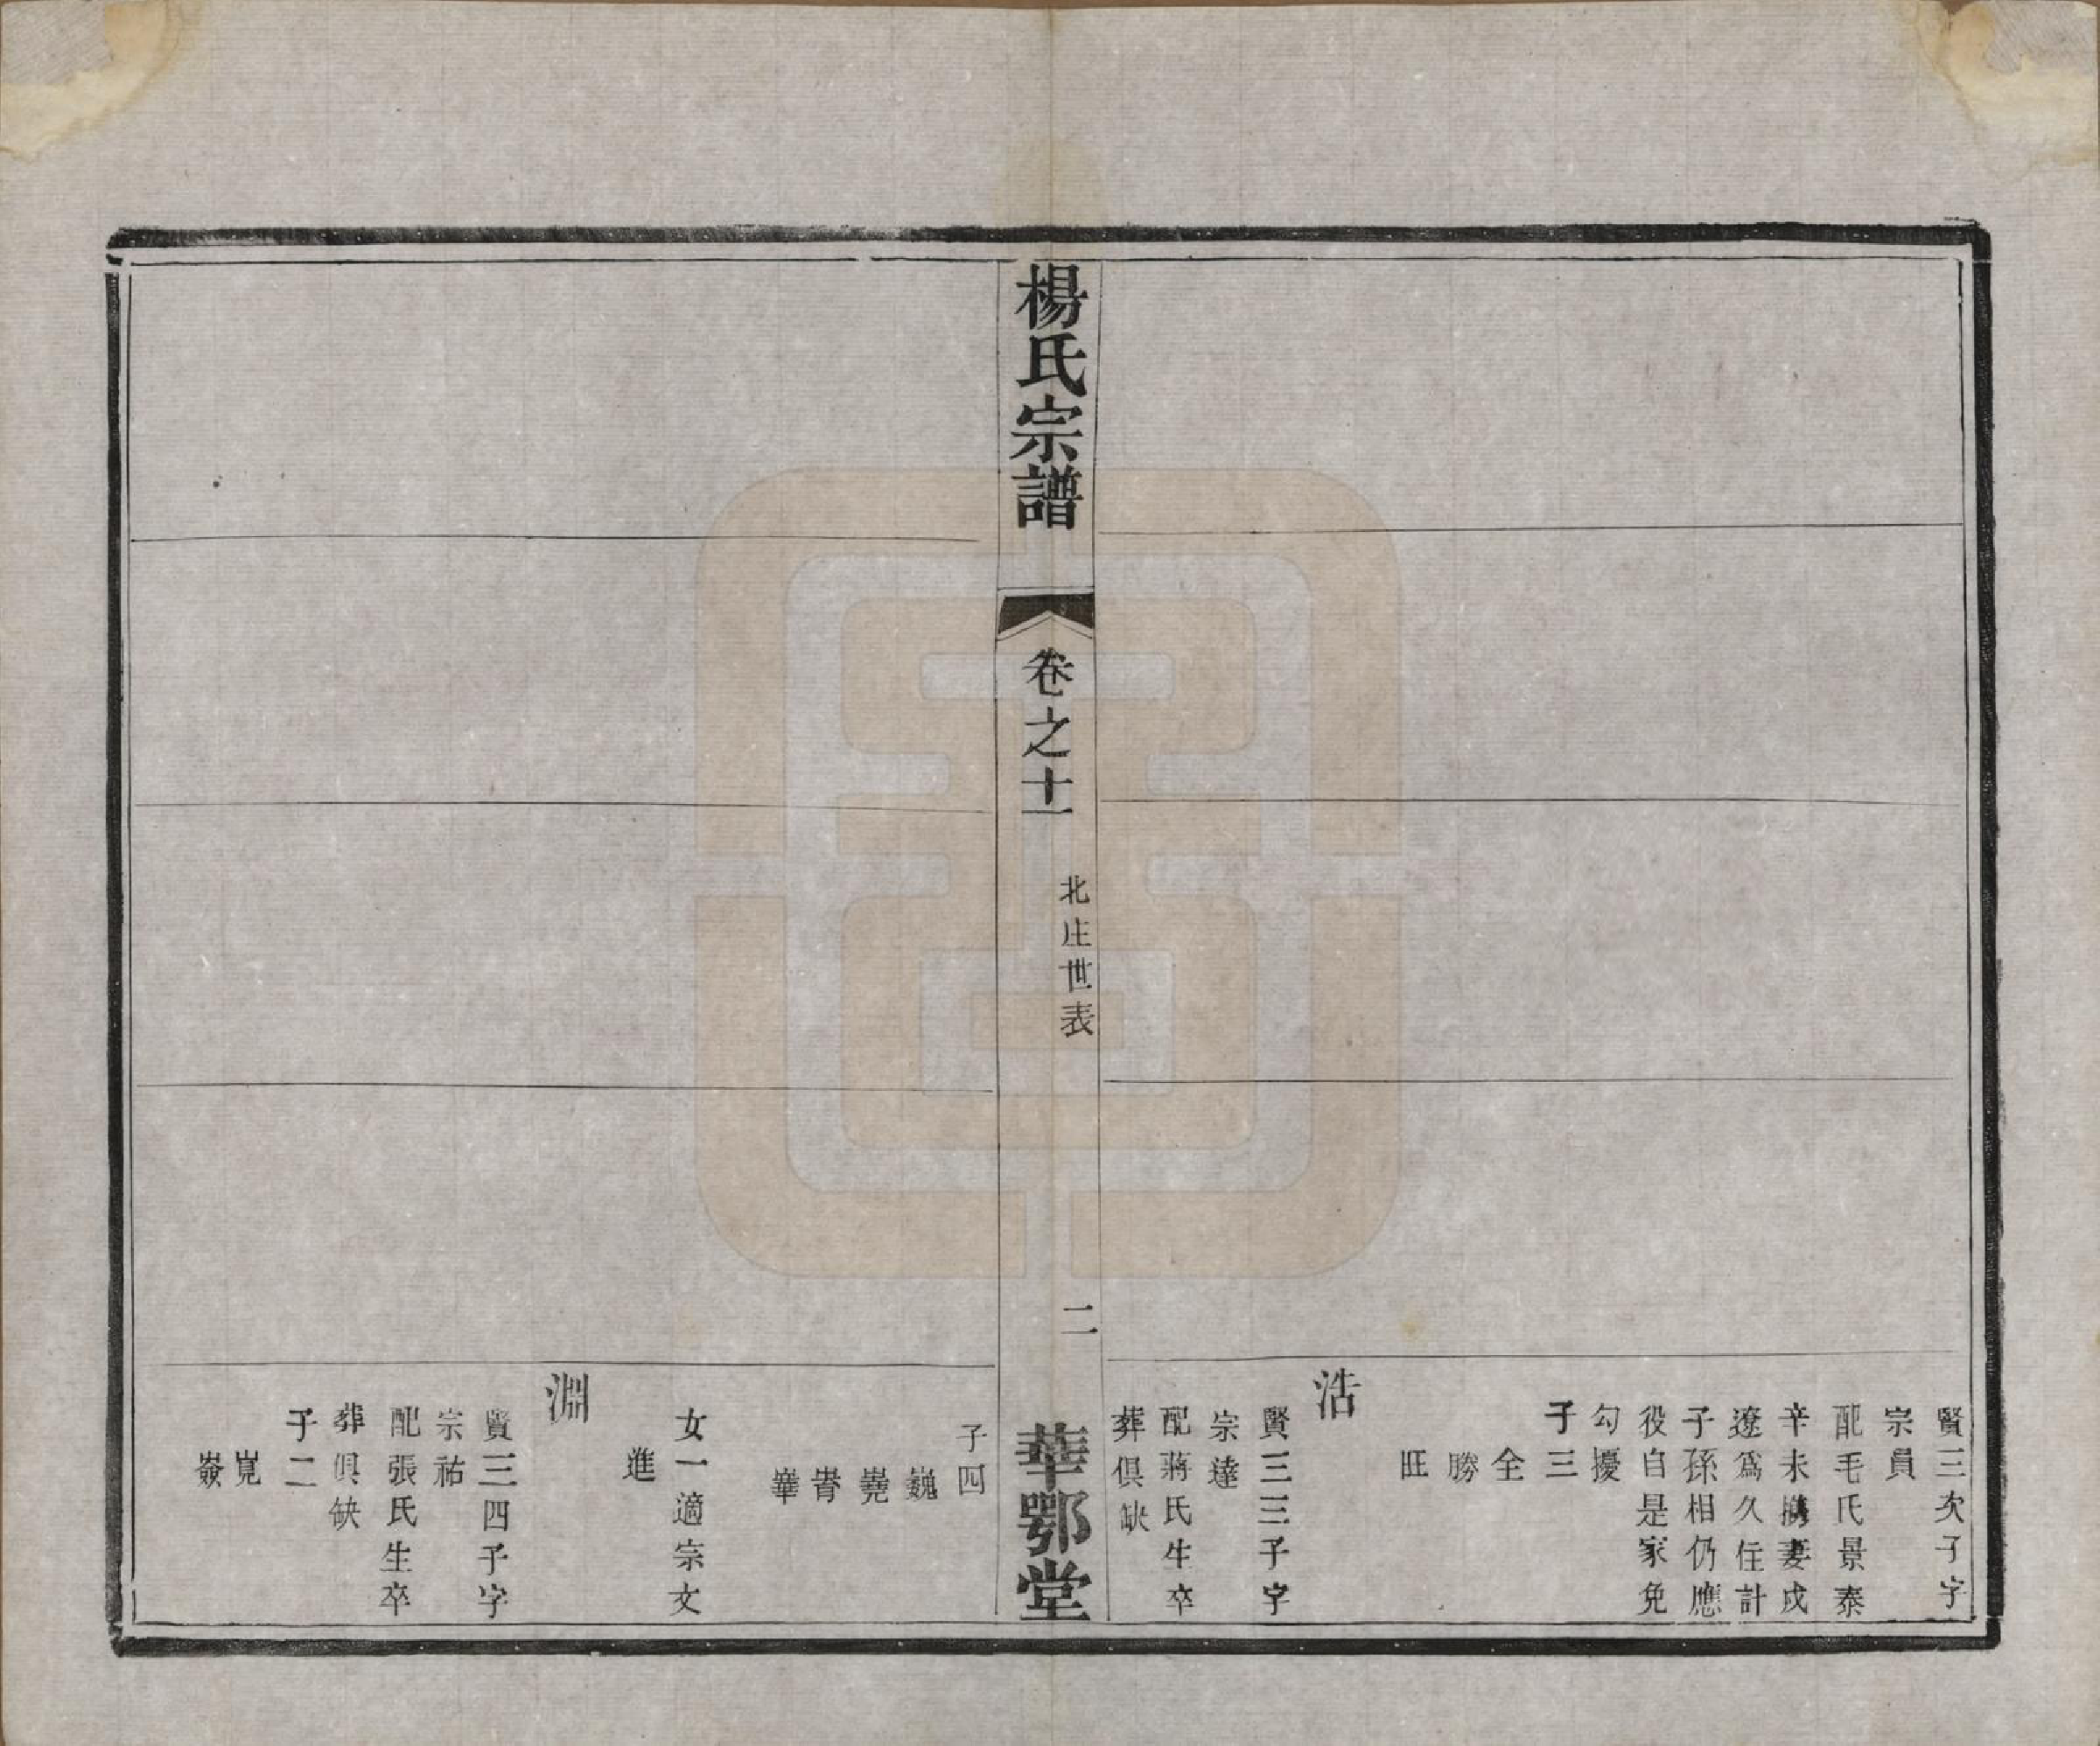 賢三次子字
宗員
配毛氏景泰
辛未擕妻戍
遼爲久住計
子孫相仍應
役自是家免
勾擾
子三
全
勝
旺
浩
賢三三子字
宗達
配蔣氏生卒
葬俱缺
楊氏宗譜
卷之十一
北庄世表
二
華鄂堂
子四
巍
嶤
崋
女一適宗文
進
淵
賢三四子字
宗祐
配張氏生卒
葬俱缺
子二